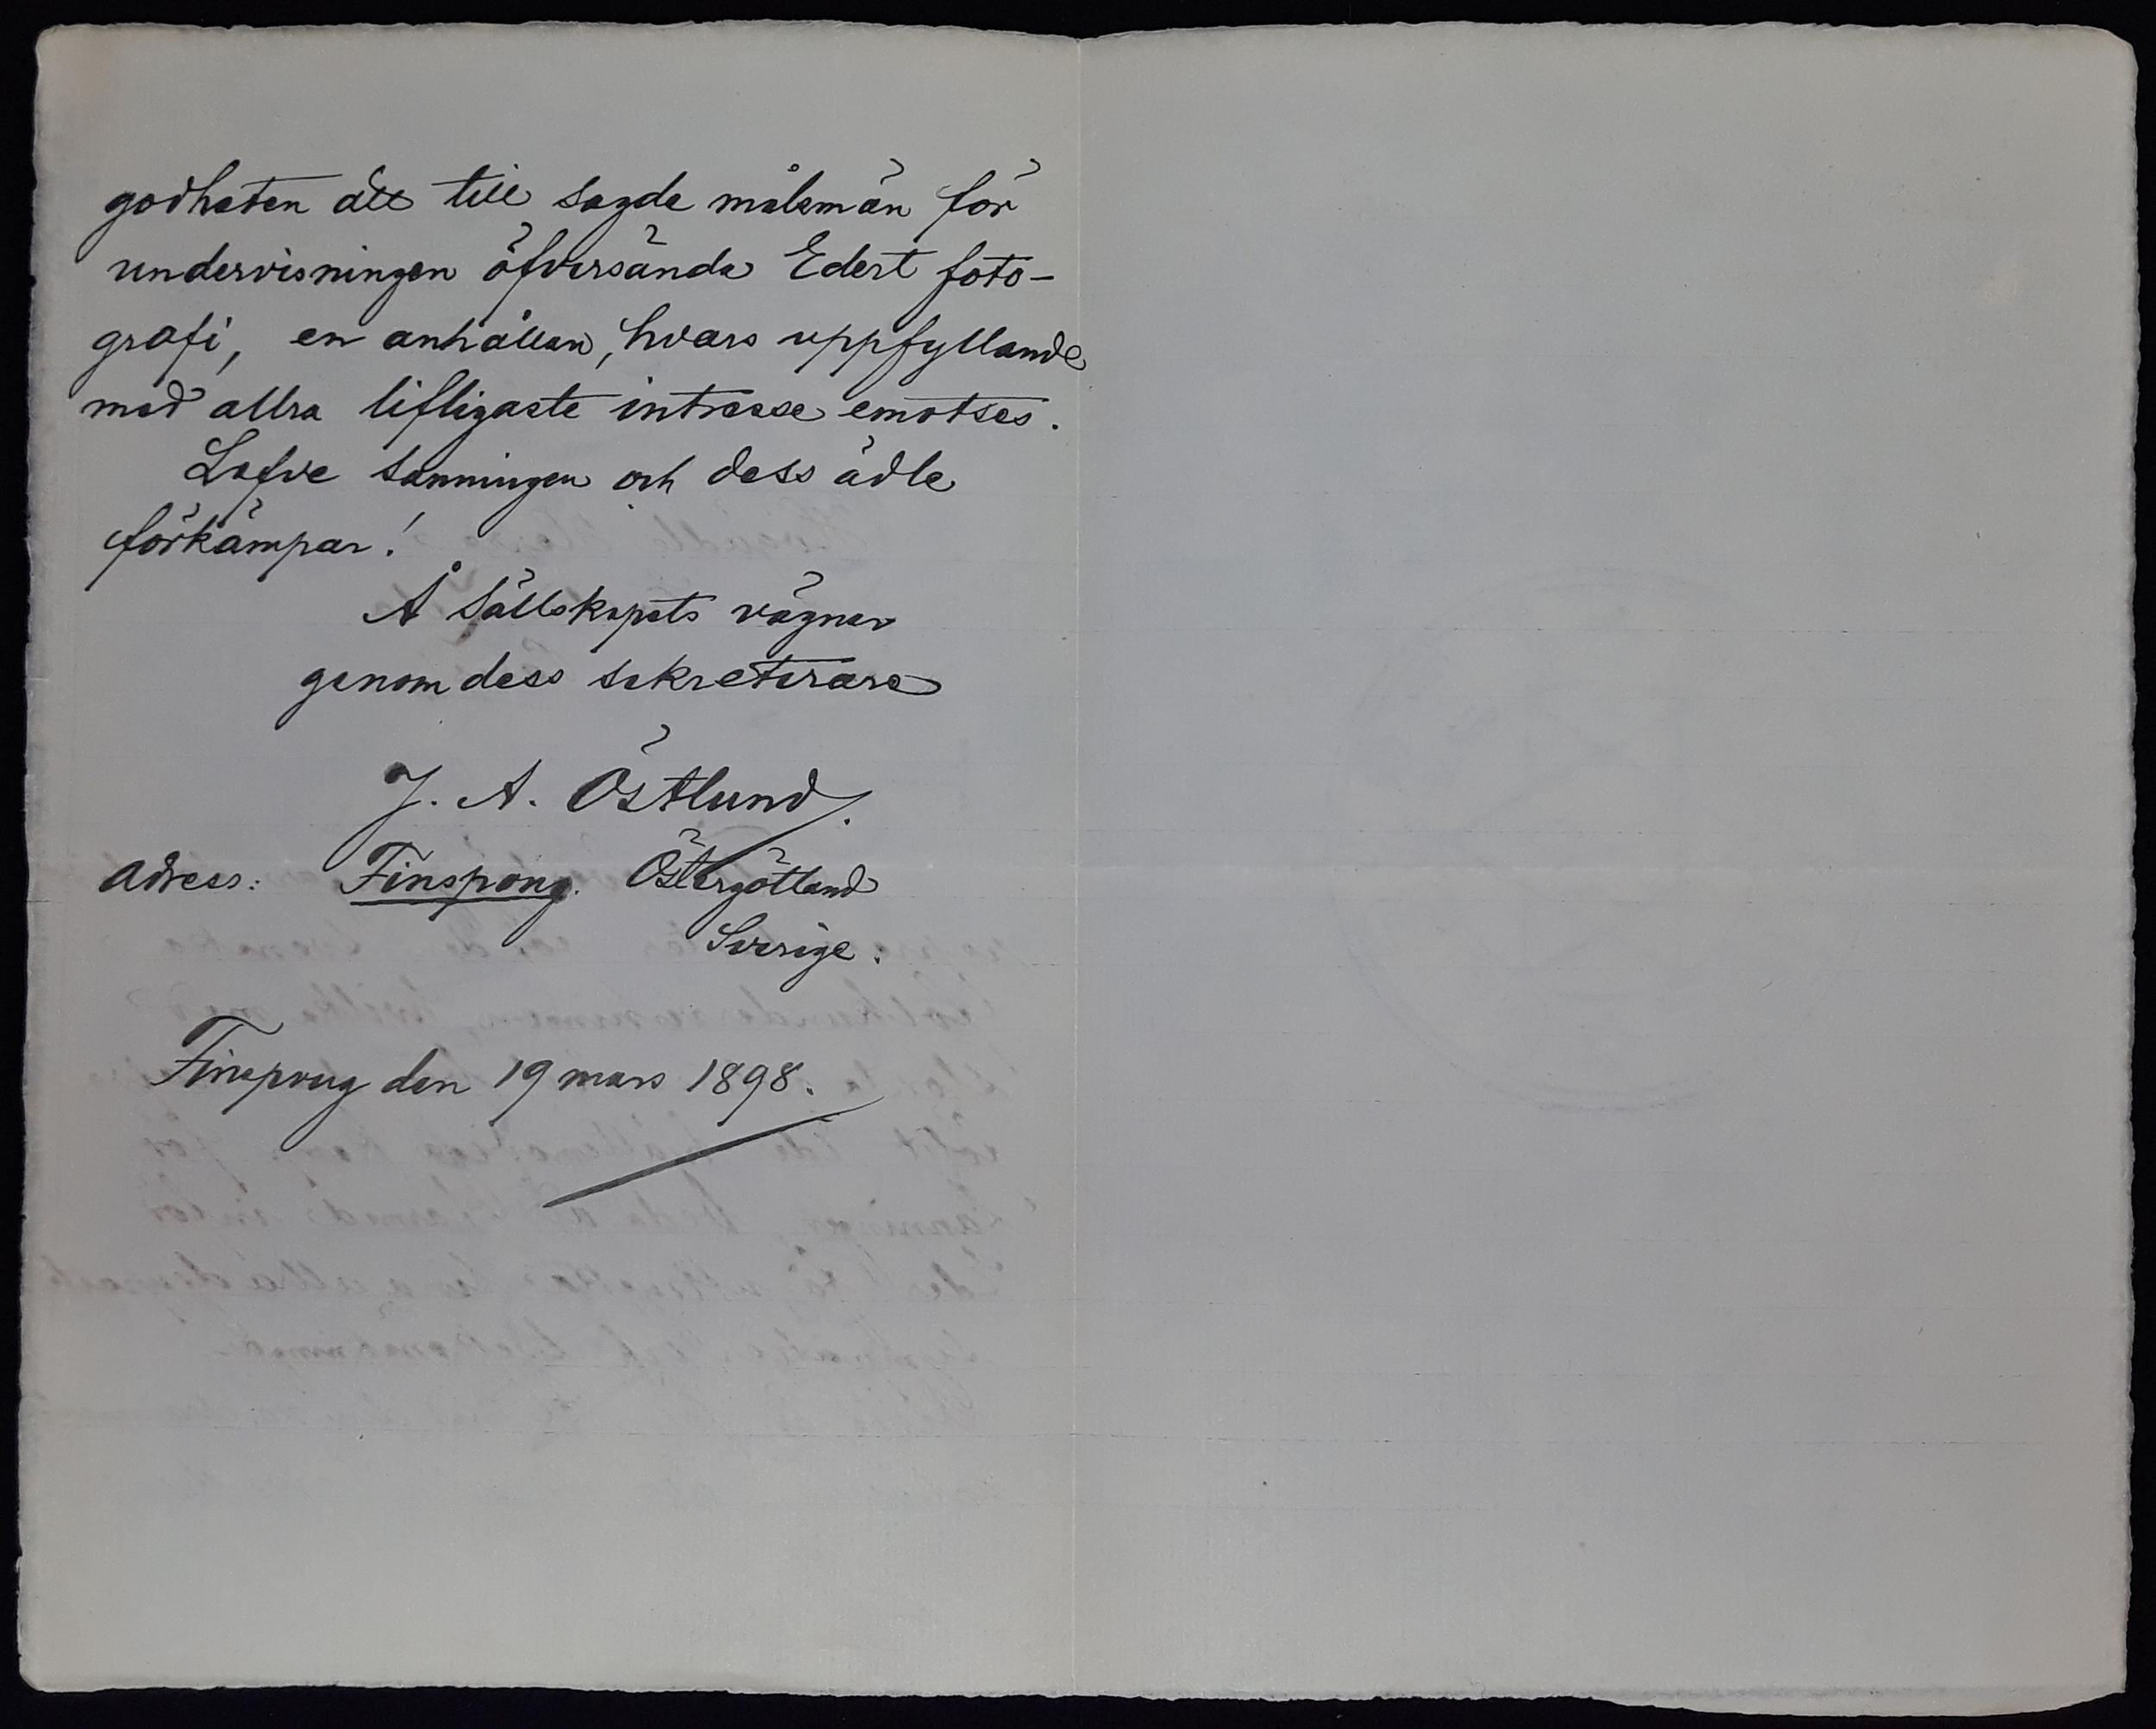 godheten att till sagde målsmän för
undervisningen öfversända Edert foto-
grafi, en anhållan, hvars uppfyllande
med allra lifligaste intresse emotses.
Lefve sanningen och dess ädle
förkämpar!
Å Sällskapets vägnar
genom dess sekreterare
J. A. Östlund.
Adress: Finspong. Östergötland
Sverige.
Finspong den 19 mars 1898.